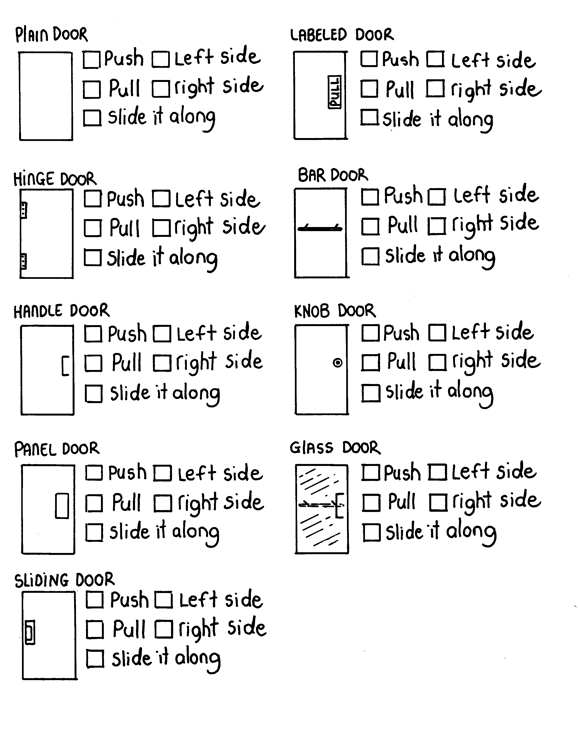 Plain Door
Push Left side
Pull right side
slide it along
Labeled Door
Push Left side
Pull right side
slide it along
PULL
Hinge Door
Push Left side
Pull right side
slide it along
Bar Door
Push Left side
Pull right side
slide it along
Handle Door
Push Left side
Pull right side
slide it along
Knob Door
Push Left side
Pull right side
slide it along
Panel Door
Push Left side
Pull right side
slide it along
Glass Door
Push Left side
Pull right side
slide it along
Sliding Door
Push Left side
Pull right side
slide it along